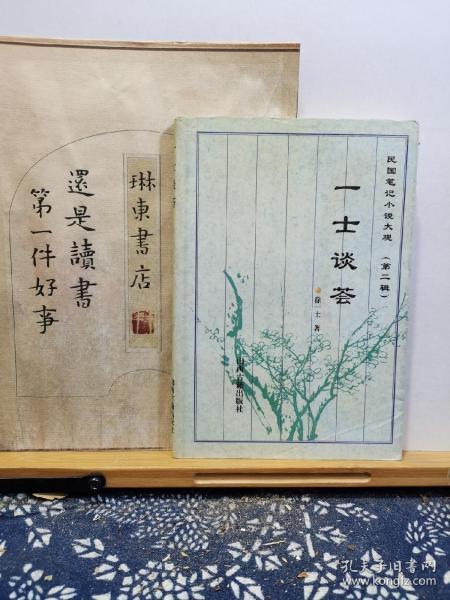 琳東書店
還是讀書
第一件好事
民国笔记小说大观（第二辑）
一士谈荟
徐一士 著
山西古籍出版社
孔夫子旧书网